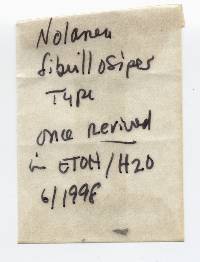 Nolanea
fibrillosipes
Type
once revived
in ETOH/H2O
6/1998